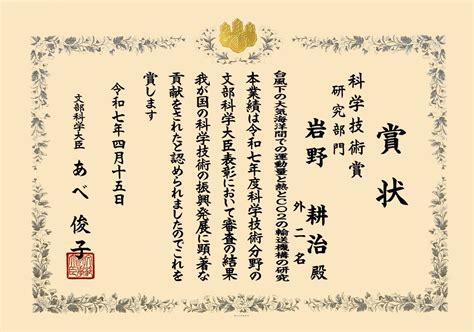 賞状
科学技術賞
研究部門
岩野 耕治 殿
外二名
台風下の大気海洋間での運動量と熱とCO2の輸送機構の研究
本業績は令和七年度科学技術分野の
文部科学大臣表彰において審査の結果
我が国の科学技術の振興発展に顕著な
貢献をされたと認められましたのでこれを
賞します
令和七年四月十五日
文部科学大臣 あべ 俊子